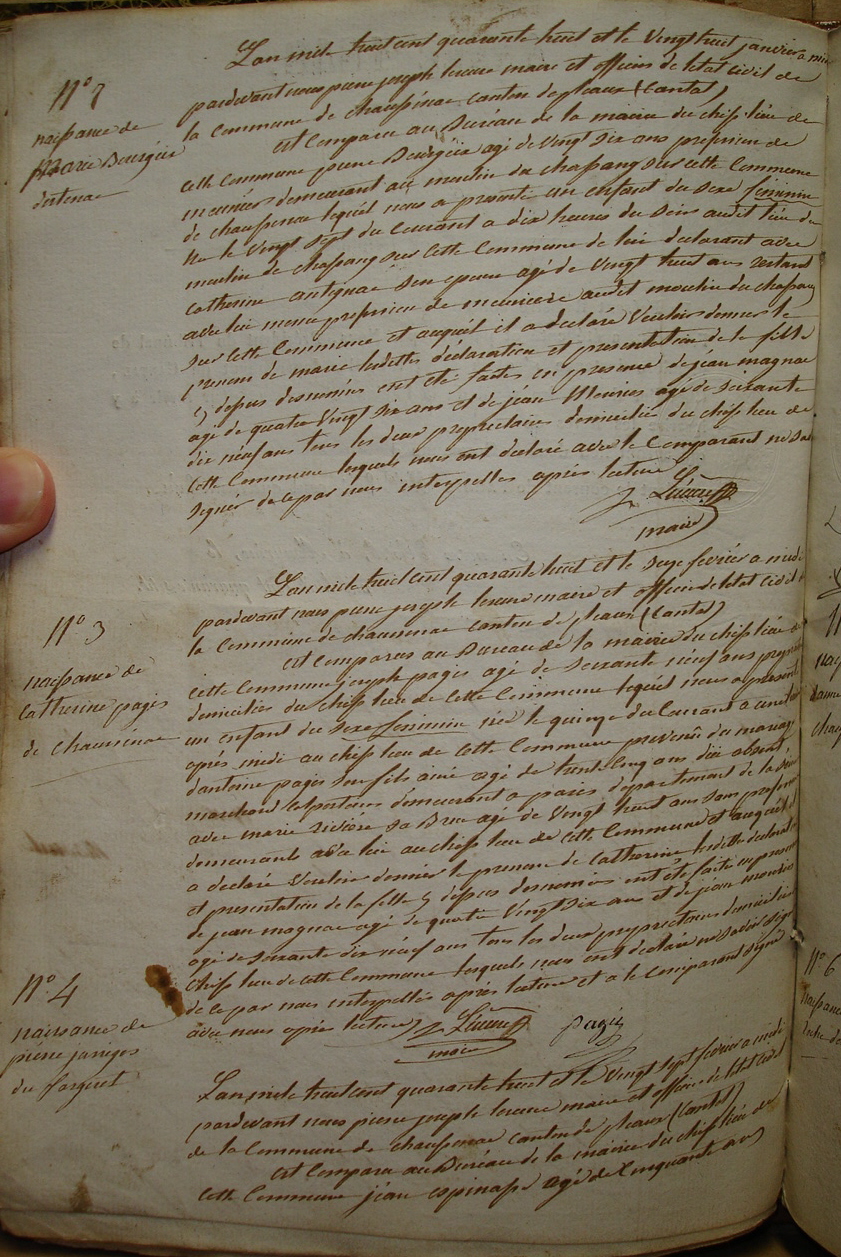 N° 7
naissance de
Marie Bourgeix
L'an mil huit cent quarante huit et le vingt huit janvier a midi
pardevant nous pierre joseph lescure maire et officier de letat civil de
la Commune de chaussenac canton de pleaux (Cantal)
est Comparu au Bureau de la mairie du chef lieu de
cette Commune pierre Bourgeix agé de vingt six ans profession de
meunier demeurant au moulin du chassang sur cette Commune
de chaussenac lequel nous a presenté un enfant du sexe feminin
né le vingt sept du Courant a dix heures du soir audit lieu du
moulin de chassang sur cette Commune de lui declarant avec
Catherine antignac son epouse agé de vingt huit ans restant
avec lui meme profession de meuniere audit moulin du chassang
sur cette Commune et auquel il a declaré vouloir donner le
prenom de marie lesdittes declaration et presentation de la fille
cy depus denomés ont eté faites en presence de jean magnac
agé de quatre vingt six ans et de jean Meinier agé de soixante
dix neuf ans tous les deux propriétaires domiciliés du chef lieu de
cette Commune lesquels nous ont declaré avec le Comparant ne savoir
signer de ce par nous interpellés après lecture
Lescure
maire
N° 3
naissance de
Catherine pagis
de chaussenac
L'an mil huit cent quarante huit et le seize fevrier a midi
pardevant nous pierre joseph lescure maire et officier de letat civil de
la Commune de chaussenac canton de pleaux (Cantal)
est Comparus au Bureau de la mairie du chef lieu de
cette Commune joseph pagis agé de soixante neuf ans propriétaire
domicilié du chef lieu de cette Commune lequel nous a presenté
un enfant du sexe feminin né le quinze du Courant a une heure
après midi au chef lieu de cette Commune provenu du mariage
d'antoine pagis son fils ainé agé de trente cinq ans dix absent
marchand colporteur demeurant a paris departement de la seine
avec marie Rivière sa Brue agé de vingt huit ans sans profession
demeurant avec lui au chef lieu de cette Commune et auquel il
a declaré vouloir donner le prenom de Catherine lesditte declaration
et presentation de la fille cy depus denomés ont eté faite en presence
de jean magnac agé de quatre vingt six ans et de jean meinier
agé de soixante dix neuf ans tous les deux propriétaires domiciliés
chef lieu de cette Commune lesquels nous ont declaré ne savoir signer
de ce par nous interpellés après lecture et a le Comparant signé
avec nous après lecture
Lescure
maire
pagis
N° 4
naissance de
pierre
du
L'an mil huit cent quarante huit et le vingt sept fevrier a midi
pardevant nous pierre joseph lescure maire et officier de letat civil
de la Commune de chaussenac canton de pleaux (Cantal)
est Comparu au Bureau de la mairie du chef lieu de
cette Commune jean espinasse agé de Cinquante ans
N° 6